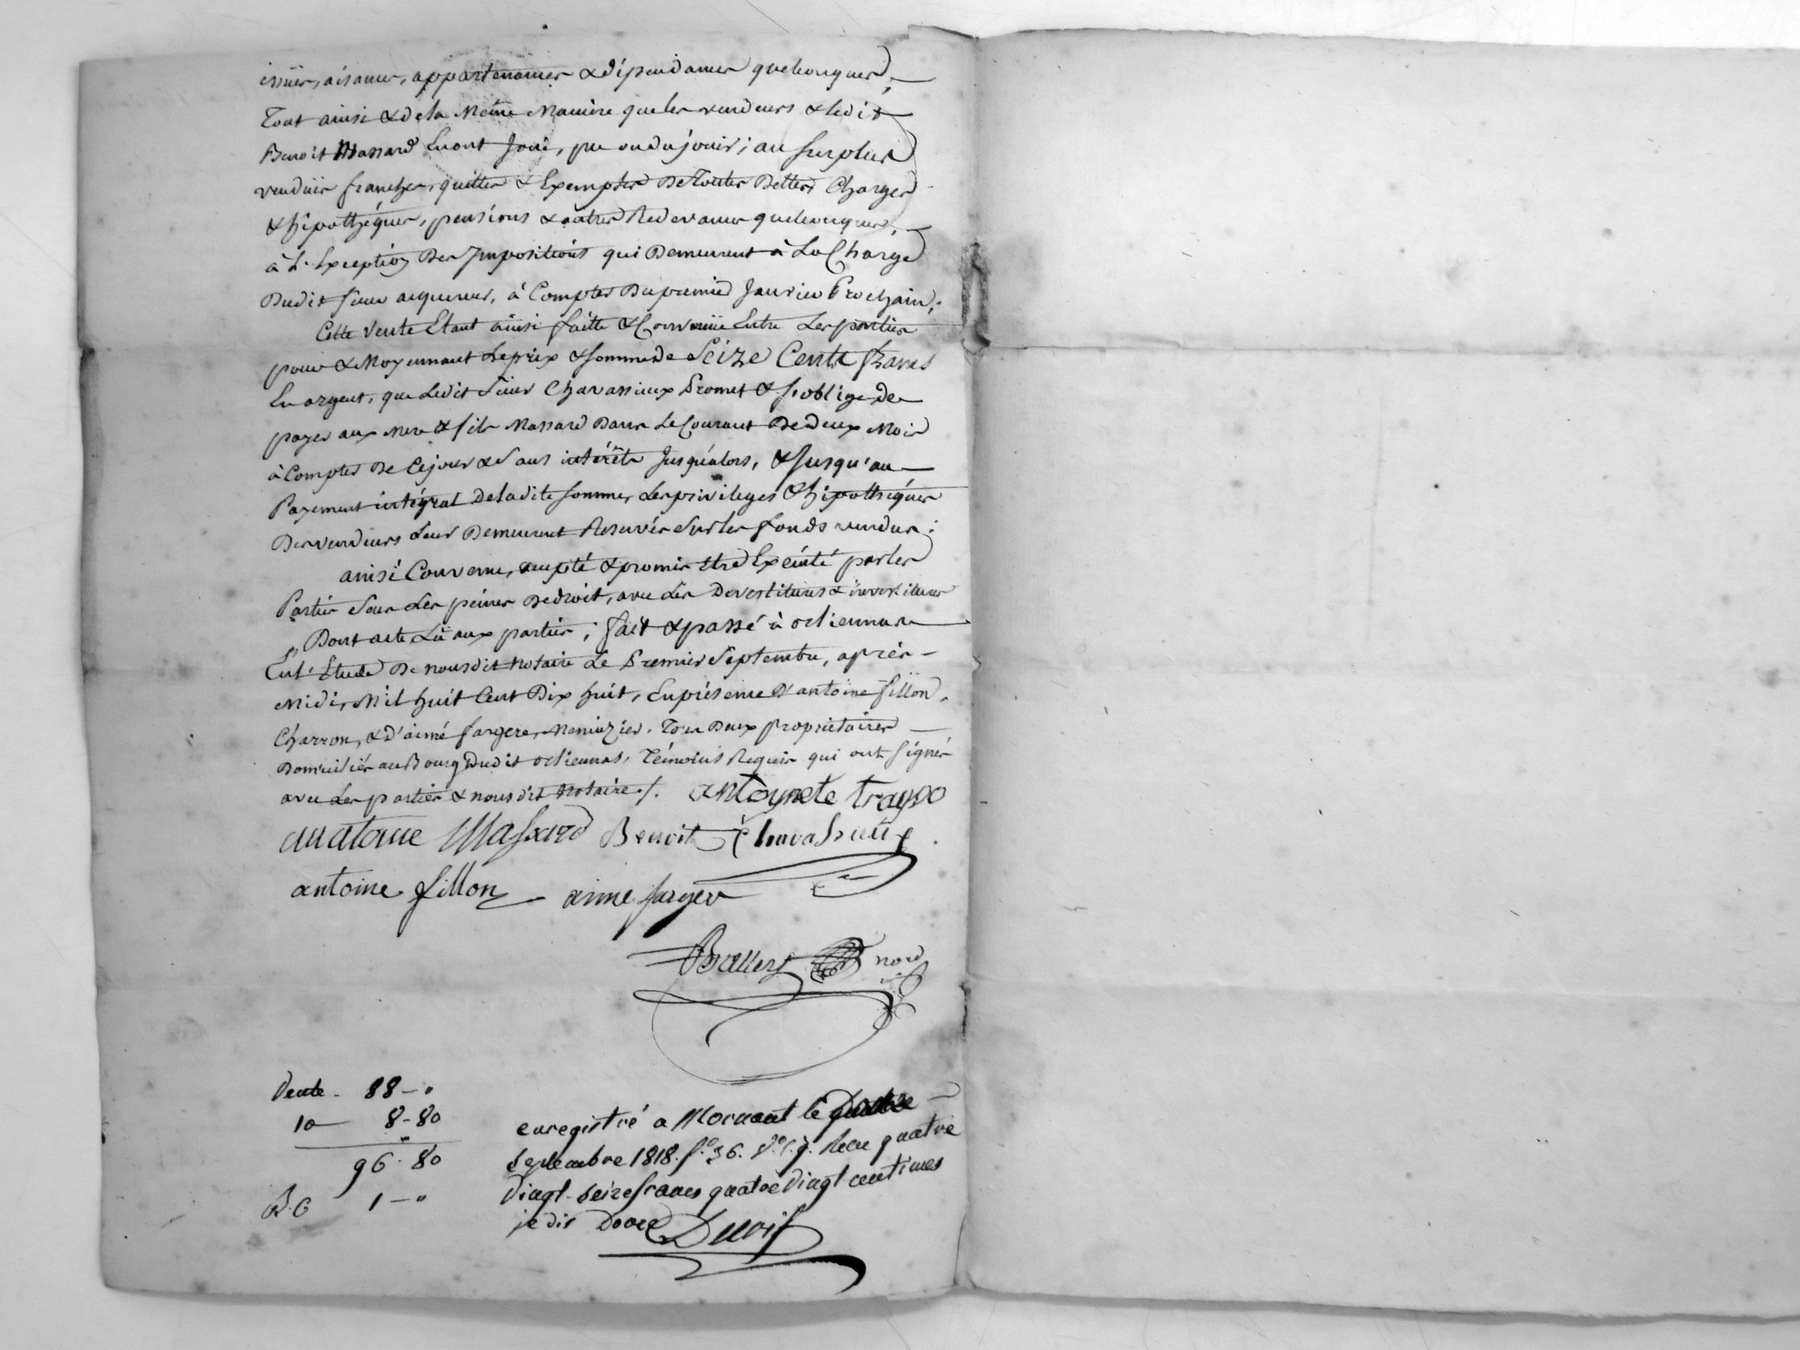 issües, aisances, appartenances & dépendances quelconques,
Tout ainsi & de la Même Manière que les vendeurs & ledit
Benoit Massard En ont Joui, pu ou du jouir; au surplus
venduës franches, quittes & Exemptes De Toutes Dettes Charges
& hipothéques, pensions & autres Redevances quelconques,
à L'Exception Des Impositions qui Demeurent à La Charge
Dudit sieur acquereur, à Compter Du premier Janvier Prochain;
Cette Vente Etant ainsi faitte & Convenüe Entre Les parties
pour & Moyennant Le prix & somme de Seize Cents francs
En argent, que Ledit Sieur Chavassieux Promet & s'oblige De
payer aux Mere & fils Massard Dans Le Courant De Deux Mois
à Compter De Cejour & Sans intérêts Jusqu'alors, & Jusqu'au
Payement intégral De ladite somme, Les privileges & hipothéques
Des vendeurs Leur Demeurent Reservés Sur les fonds vendus;
ainsi Convenu, accepté & promis Etre Exécuté par les
Parties Sous Les peines De droit, avec Les Devestitures & investitures
Dont acte Lû aux parties; fait & passé à orliennas
En L'Etude De nousdit Notaire Le Premier Septembre, après
Midi, Mil huit Cent Dix huit, En présence D'antoine fillon,
Charron, & D'aimé fargere, Menuzier, Tous Deux propriétaires
Domiciliés au Bourg Dudit orliennas, Témoins Requis qui ont Signés
avec Les parties & nousdit Notaire ./. antoynete trayno
antoine Massard Benoit Chavassieux
antoine fillon aime farger
Vente - 88 - "
10 8 - 80
96 - 80
R.G 1 - "
enregistré a Mornant le quatre
Septembre 1818. f.° 36. V.° c. 7. Reçu quatre
Vingt-seize francs quatre Vingt centimes
je dis Douze